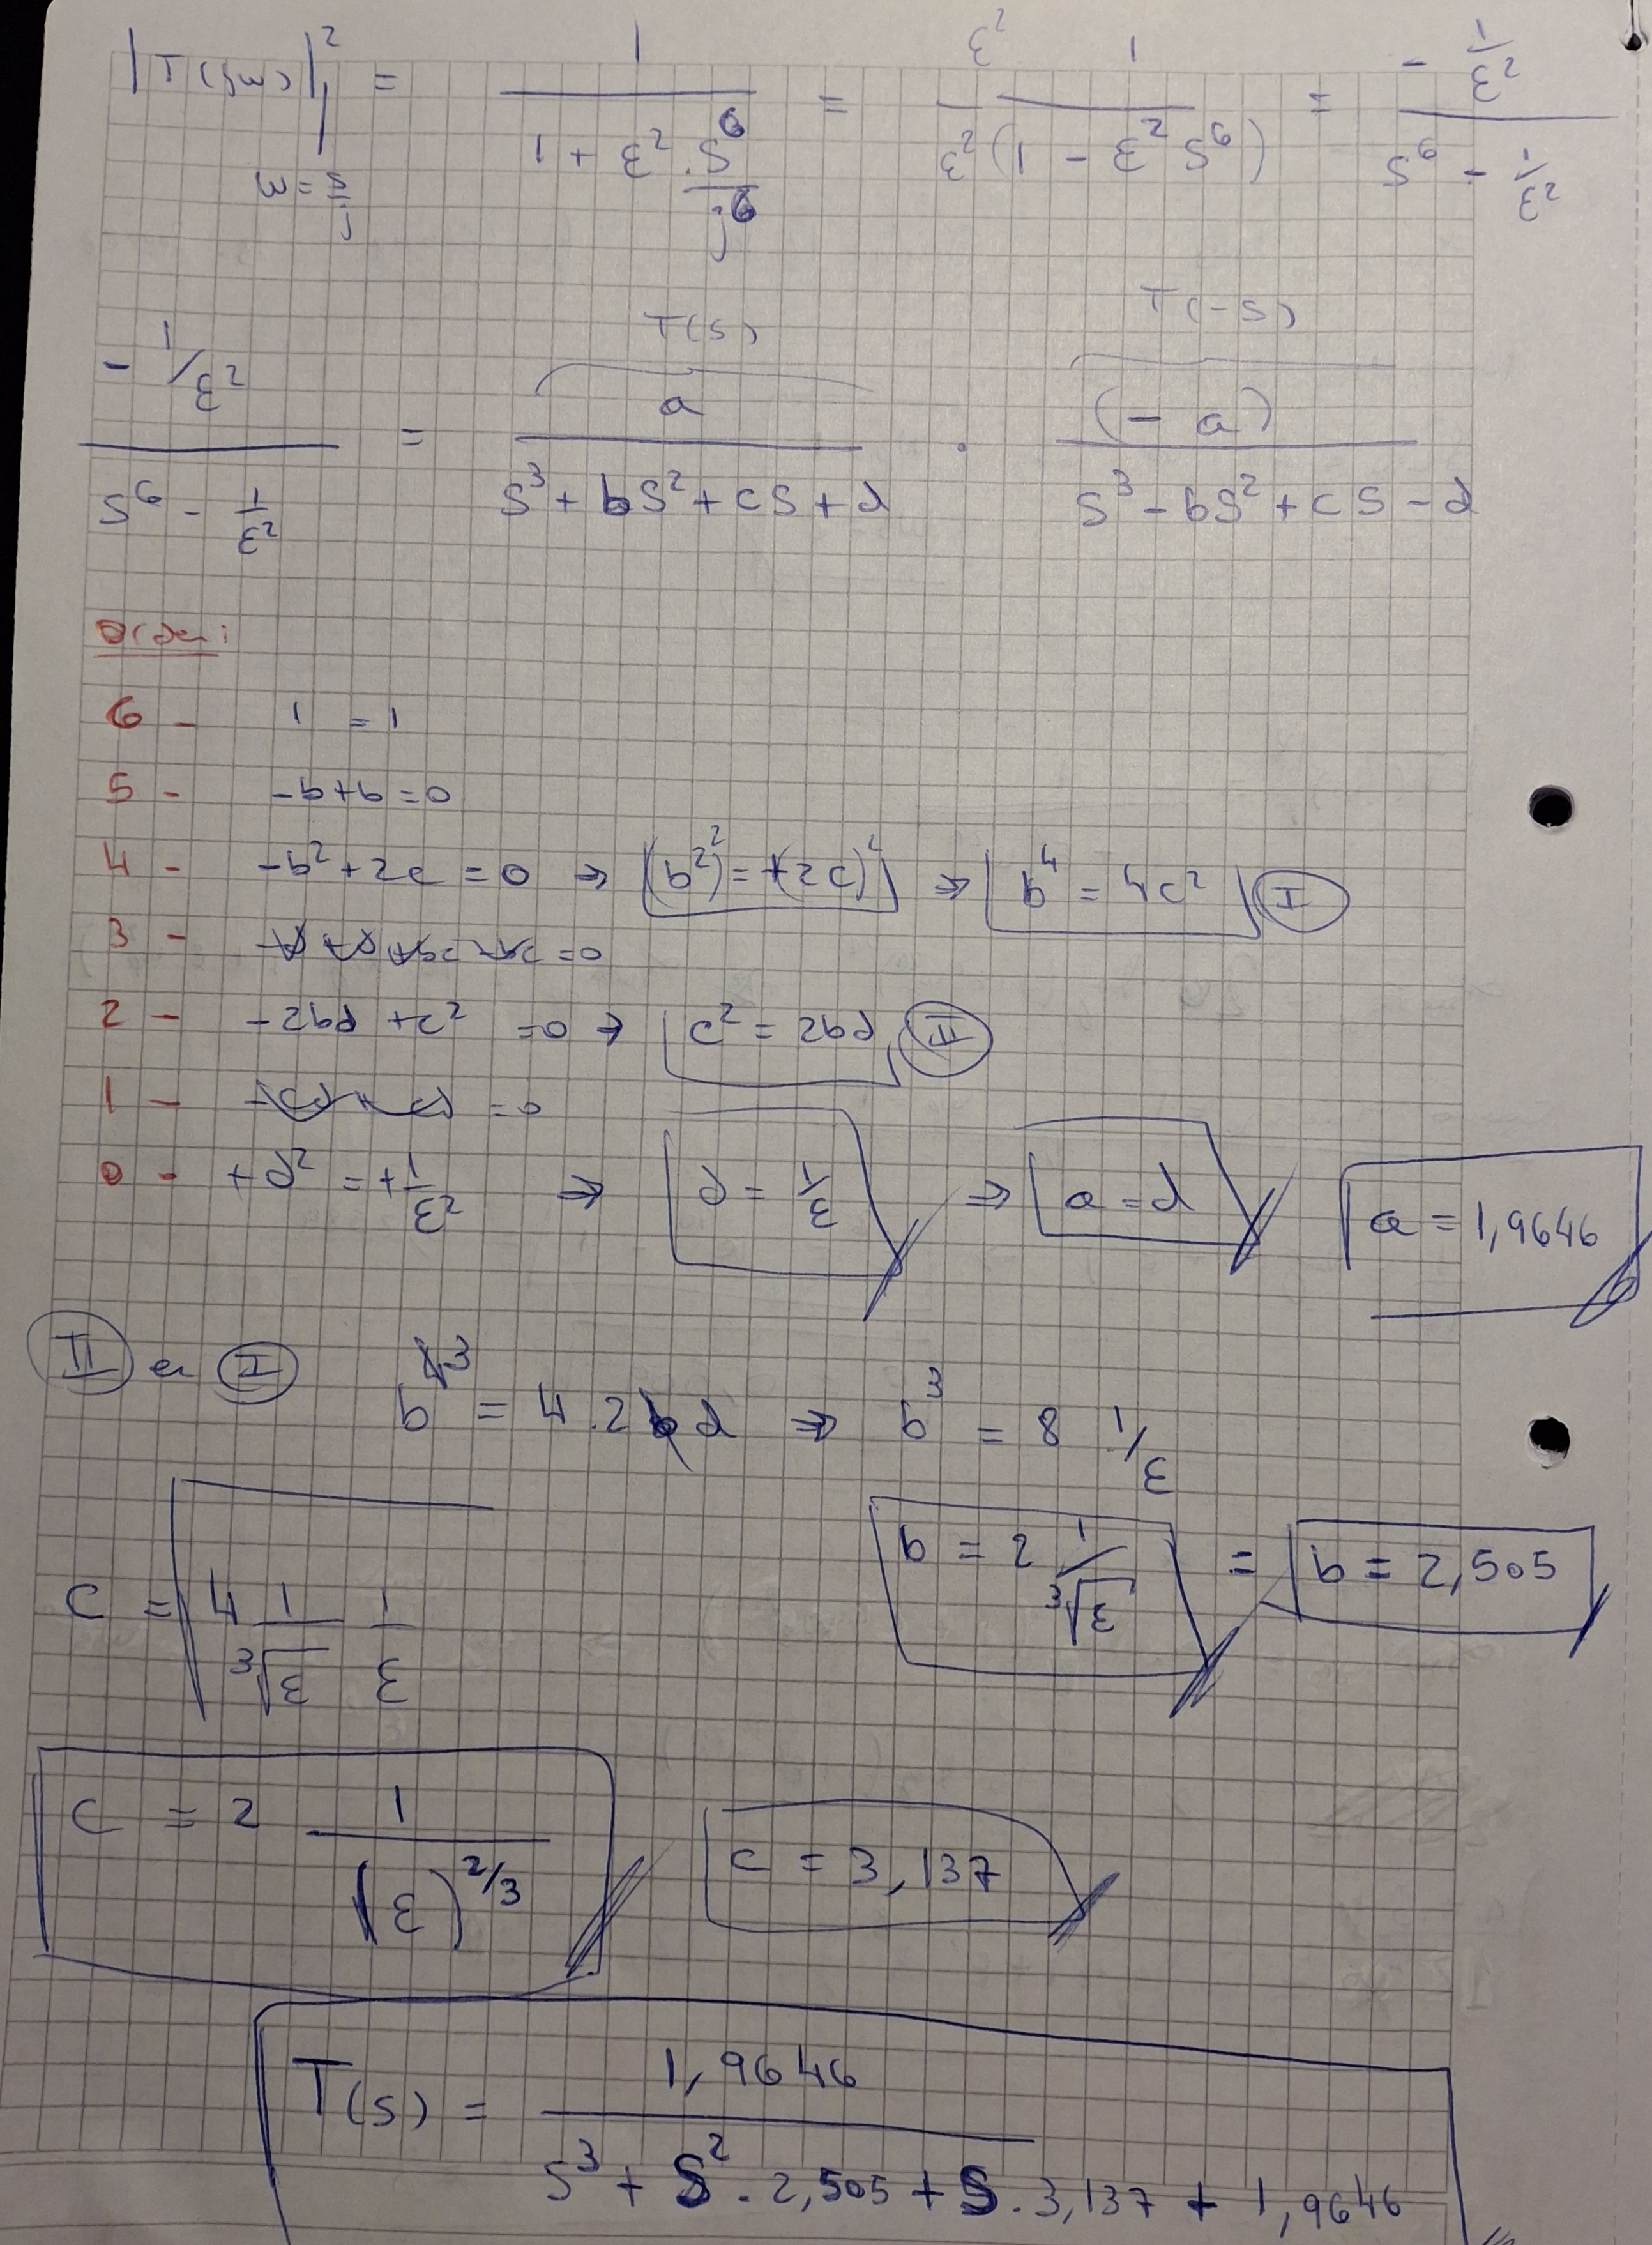 |T(jω)|²|ω=s/j = 1 / (1 + ε² . S⁶/j⁶) = ε² 1 / ε²(1 - ε² S⁶) = - 1/ε² / (S⁶ - 1/ε²)
T(S) T(-S)
- 1/ε² / (S⁶ - 1/ε²) = a / (S³ + bS² + cS + d) . (- a) / (S³ - bS² + cS - d)
Orden:
6 - 1 = 1
5 - -b+b=0
4 - -b² + 2c = 0 ⇒ (b²)² = +(2c)² ⇒ b⁴ = 4c² I
3 - =0
2 - -2bd + c² =0 ⇒ c² = 2bd II
1 - =0
0 - +d² = +1/ε² ⇒ d = 1/ε ⇒ a=d a = 1,9646
II en I b⁴³ = 4.2bd ⇒ b³ = 8 1/ε
b = 2 1/³√ε = b = 2,505
c = √4 1/³√ε 1/ε
c = 2 1/(ε)^2/3 c = 3,137
T(S) = 1,9646 / (S³ + S² . 2,505 + S . 3,137 + 1,9646)